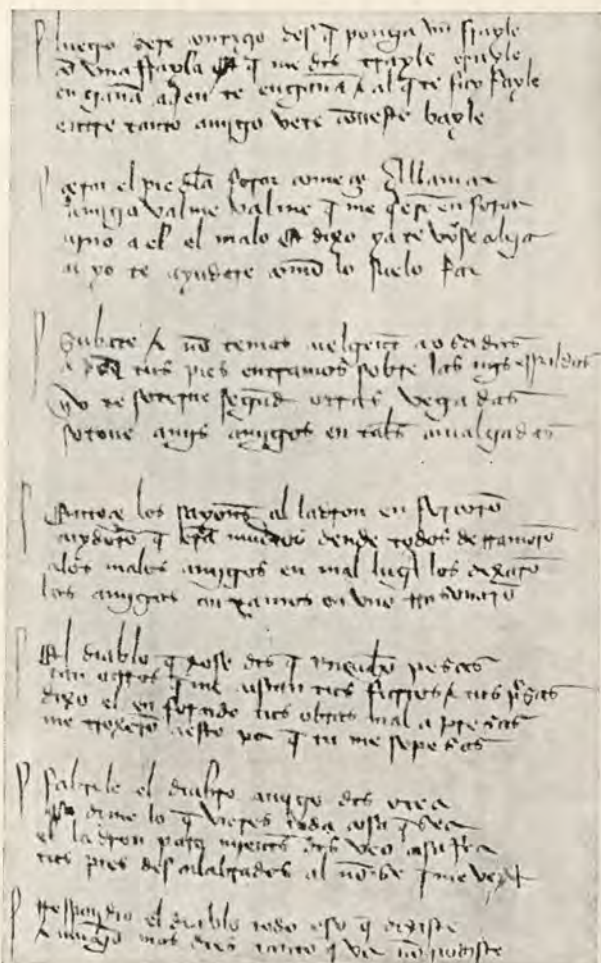 luego sere contigo desq̄ ponga vn̄ frayle
cō vna frayla q̄ me dis trayle trayle
engana a q̄en te engana & al q̄ te fay fayle
entre tanto amigo vete cō este bayle
açerca el pie dla forca començo llamar
amigo valme valme q̄ me enforcar
vino a el el malo dixo ya te colgar
yo te ayudare como lo suelo far
subate & nō temas a osadas
tus pies entramos sobre las mis espaldas
yo te soterne segund otras vegadas
sotoue amis amigos en tales caualgadas
Entoçe los sayones al ladron enforcarō
cuydarō q̄ era muerto dende todos derramarō
alos malos amigos en mal lugar los dexarō
los amigos entramos en vno rrasonarō
El diablo q̄xose dis q̄ mucho pesas
tan caros q̄ me custan tus furtos & tus presas
dixo el enforcado tus obras mal apresas
me troxerō aesto por q̄ tu me sopesas
fablole el diablo amigo dis otea
dime lo q̄ vieres toda cosa q̄ sea
el ladron paro mientes dis veo cosa fea
tus pies descalabrados al nō se q̄ me vea
Respondio el diablo todo eso q̄ dixiste
& mucho mas dos tanto q̄ ver nō podiste